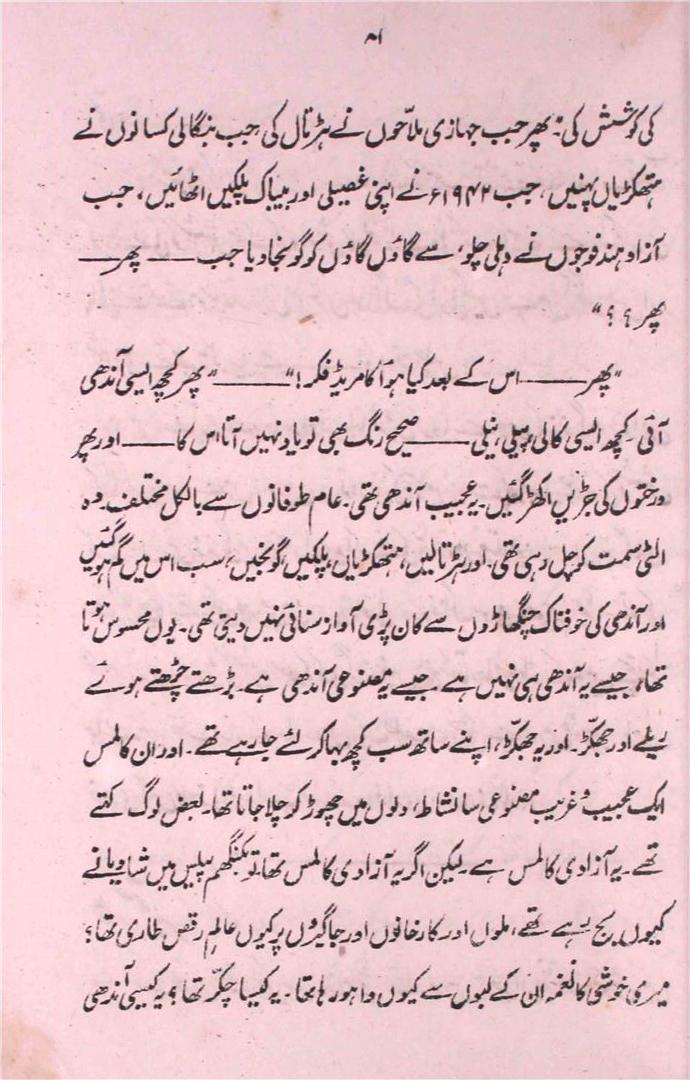 ۸۱
کی کوشش کی؛ پھر جب جہازی ملاّحوں نے ہڑتال کی جب بنگالی کسانوں نے
ہتھکڑیاں پہنیں، جب ۱۹۴۲ء نے اپنی غصیلی اور بیباک پلکیں اٹھائیں، جب
آزاد ہند فوجوں نے دہلی چلو، سے گاؤں گاؤں کو گونجا دیا جب —— پھر ——
پھر؟؟"
"پھر —— اس کے بعد کیا ہوٗا کامریڈ فکر!" —— "پھر کچھ ایسی آندھی
آئی۔ کچھ ایسی کالی، پیلی، نیلی —— صحیح رنگ بھی تو یاد نہیں آتا اس کا —— اور پھر
درختوں کی جڑیں اکھڑ گئیں۔ یہ عجیب آندھی تھی۔ عام طوفانوں سے بالکل مختلف۔ وہ
الٹی سمت کو چل رہی تھی۔ اور ہڑتالیں، ہتھکڑیاں، پلکیں، گونجیں، سب اس میں گم ہو گئیں
اور آندھی کی خوفناک چنگھاڑوں سے کان پڑی آواز سنائی نہیں دیتی تھی۔ یوں محسوس ہوتا
تھا، جیسے یہ آندھی ہی نہیں ہے جیسے یہ مصنوعی آندھی ہے۔ بڑھتے چڑھتے ہوئے
ریلے اور جھکڑ۔ اور یہ جھکڑ، اپنے ساتھ سب کچھ بہا کر لئے جا رہے تھے۔ اور ان کا لمس
ایک عجیب و غریب مصنوعی سا نشاط، دلوں میں چھوڑ کر چلا جاتا تھا۔ بعض لوگ کہتے
تھے۔ یہ آزادی کا لمس ہے۔ لیکن اگر یہ آزادی کا لمس تھا تو بکنگھم پیلیس میں شادیانے
کیوں بج رہے تھے، ملوں اور کارخانوں اور جاگیروں پر کیوں عالمِ رقص طاری تھا؟
میری خوشی کا نغمہ ان کے لبوں سے کیوں وا ہو رہا تھا۔ یہ کیسا چکّر تھا؟ یہ کیسی آندھی